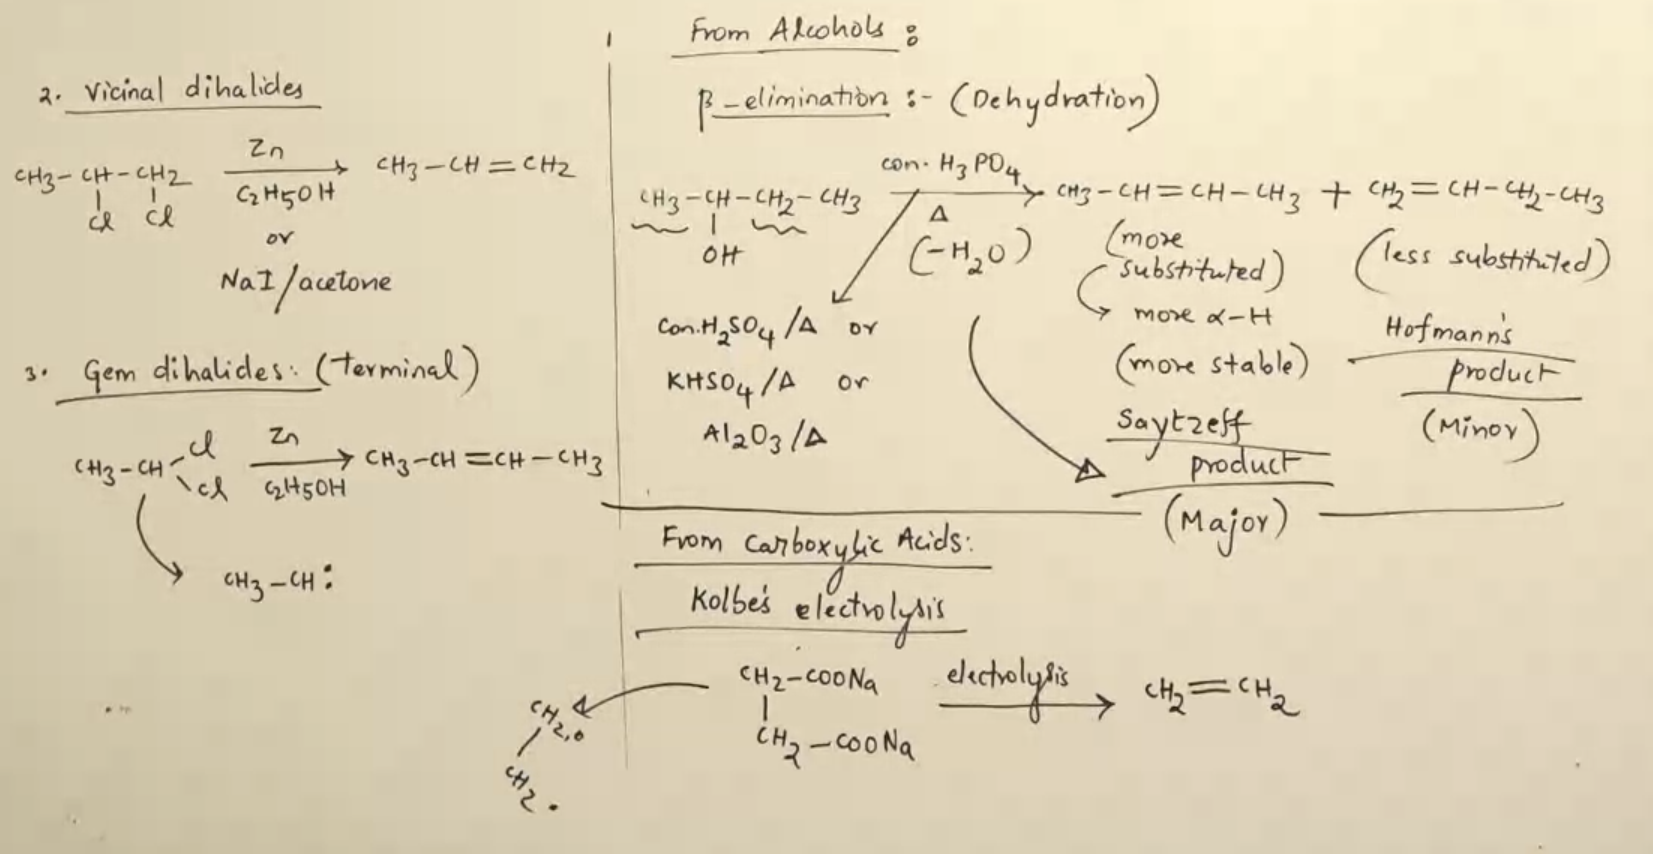 2. Vicinal dihalides
CH3-CH-CH2 Zn CH3-CH=CH2
Cl Cl C2H5OH
or
NaI/acetone
3. Gem dihalides: (terminal)
CH3-CH Cl Cl Zn C2H5OH CH3-CH=CH-CH3
CH3-CH:
From Alcohols:
β-elimination :- (Dehydration)
con. H3PO4
CH3-CH-CH2-CH3 Δ CH3-CH=CH-CH3 + CH2=CH-CH2-CH3
OH (-H2O)
(more substituted)
more α-H
(more stable)
Saytzeff
product
(Major)
(less substituted)
Hofmann's
product
(Minor)
Con.H2SO4/Δ or
KHSO4/Δ or
Al2O3/Δ
From Carboxylic Acids:
Kolbe's electrolysis
CH2-COONa electrolysis CH2=CH2
CH2-COONa
CH2.
CH2.